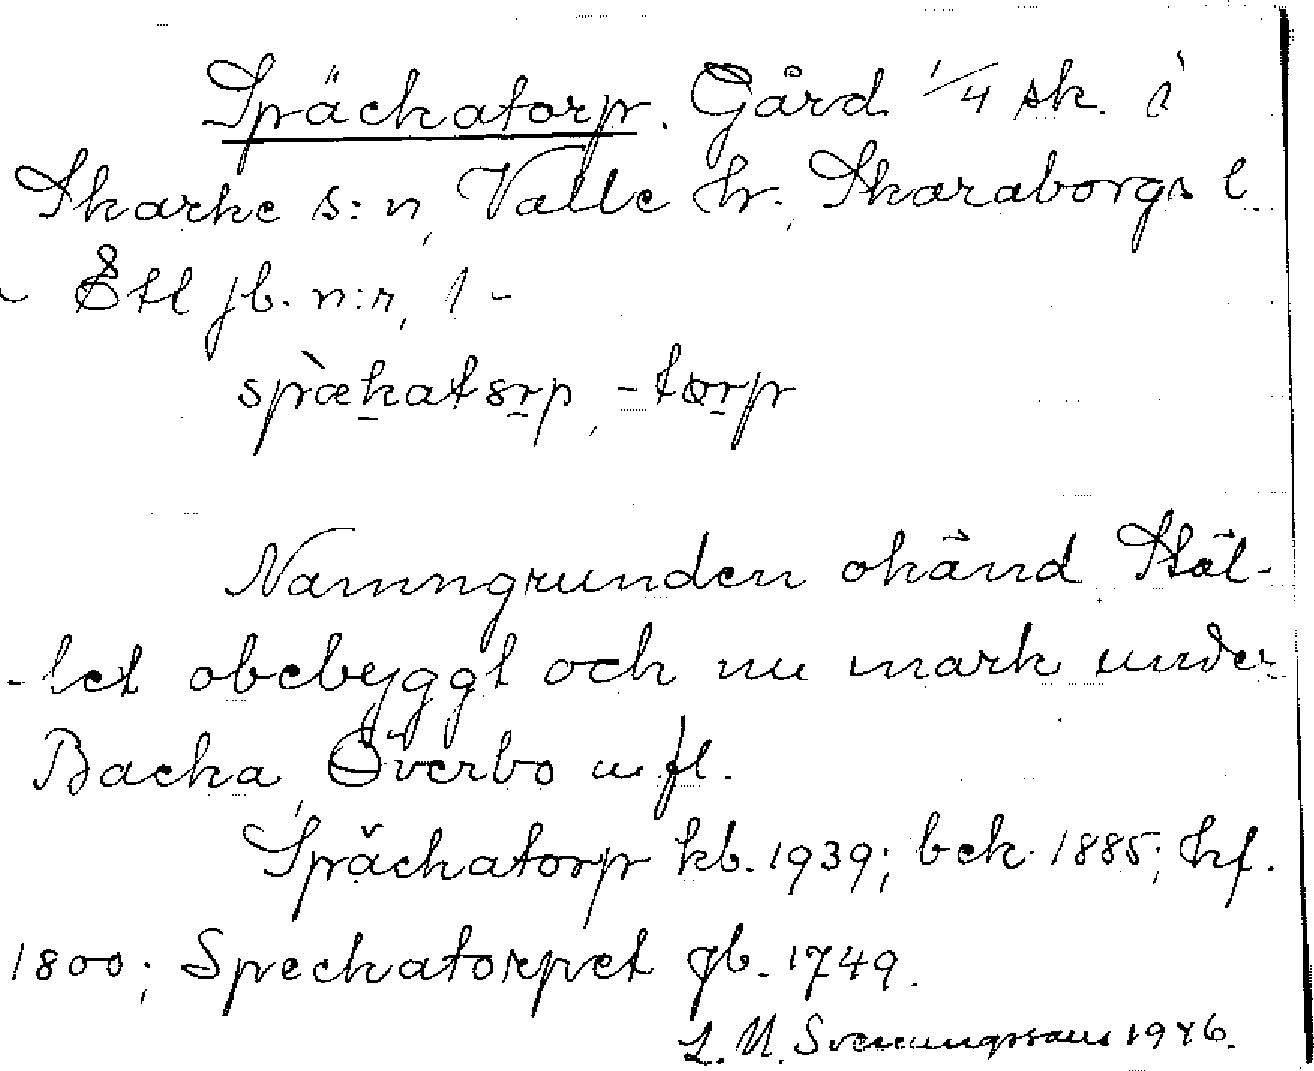 Späckatorp. Gård 1/4 sk. i
Skarke s:n, Valle hr., Skaraborgs l.
- Ett jb. n:r, 1 -
spæ̀katsrp, -tørp
Namngrunden okänd Stäl-
-let obebyggt och nu mark under
Backa, Överbo m fl.
Späckatorp kb. 1939; bek. 1885; hf.
1800; Speckatorpet gb. 1749.
L. M. Svenungsson 1946.